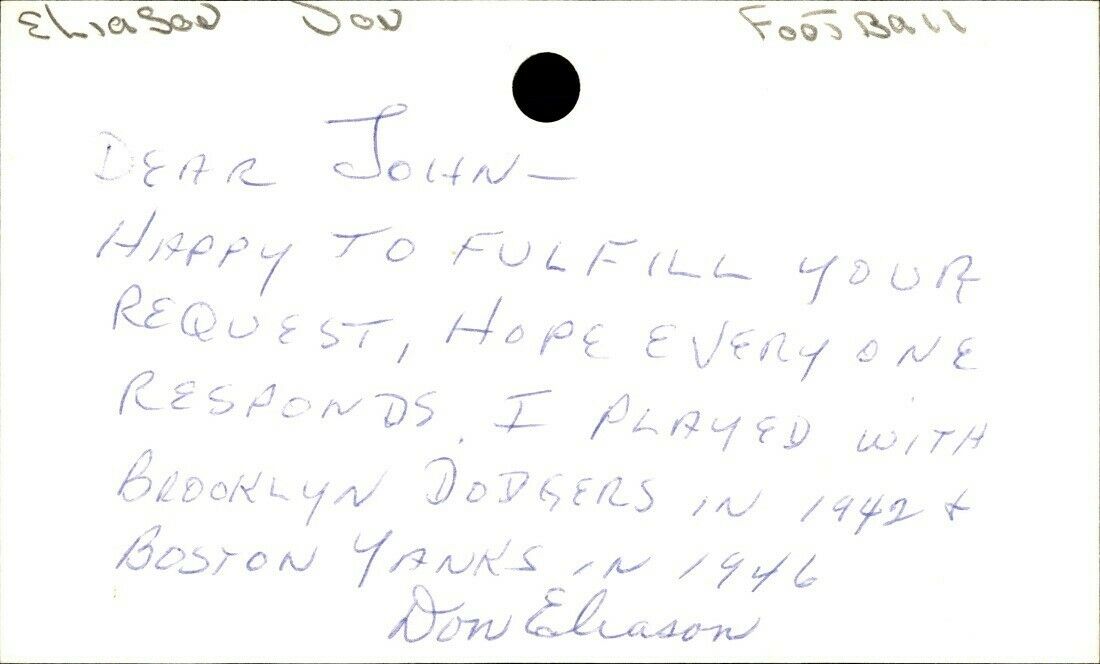 Eliason Don Football
DEAR JOHN–
HAPPY TO FULFILL YOUR
REQUEST, HOPE EVERYONE
RESPONDS. I PLAYED WITH
BROOKLYN DODGERS IN 1942 &
BOSTON YANKS IN 1946
Don Eliason